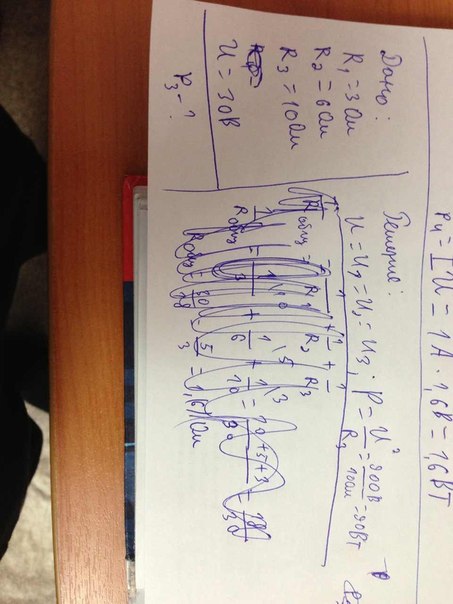 P4 = IU = 1A · 1,6В = 1,6Вт
Дано:
R1 = 3Ом
R2 = 6Ом
R3 = 10Ом
U = 30В
P3 - ?
Решение:
U = U2 = U1 = U3; P = U² / R3 = 900В / 10Ом = 90Вт
1 / Rобщ = 1 / R1 + 1 / R2 + 1 / R3
1 / Rобщ = 1 / 3 + 1 / 6 + 1 / 10 = 10+5+3 / 30 = 18 / 30
Rобщ = 30 / 18 = 5 / 3 = 1,6 Ом